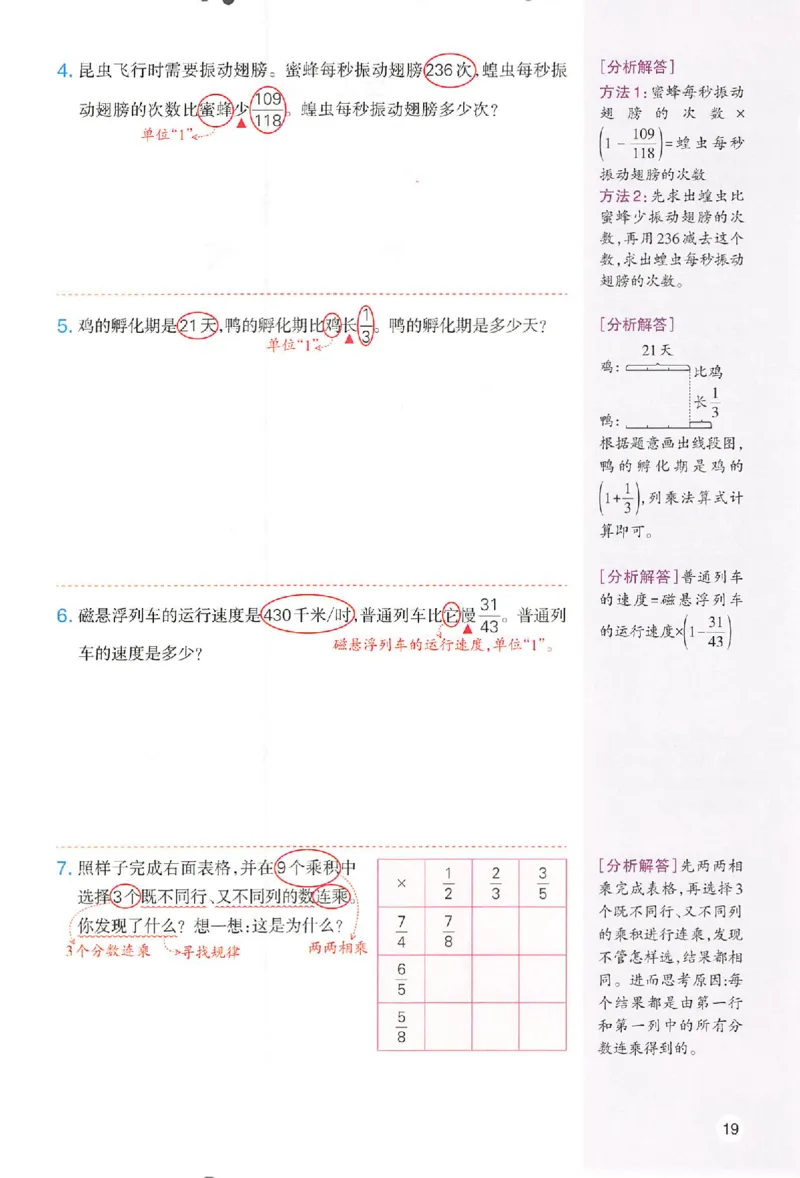 4. 昆虫飞行时需要振动翅膀。蜜蜂每秒振动翅膀236次,蝗虫每秒振
动翅膀的次数比蜜蜂少109/118。蝗虫每秒振动翅膀多少次?
单位“1”
5. 鸡的孵化期是21天,鸭的孵化期比鸡长1/3。鸭的孵化期是多少天?
单位“1”
6. 磁悬浮列车的运行速度是430千米/时,普通列车比它慢31/43。普通列
车的速度是多少?
磁悬浮列车的运行速度,单位“1”。
7. 照样子完成右面表格,并在9个乘积中
选择3个既不同行、又不同列的数连乘。
你发现了什么? 想一想:这是为什么?
3个分数连乘 寻找规律 两两相乘
× 1/2 2/3 3/5
7/4 7/8
6/5
5/8
[分析解答]
方法1:蜜蜂每秒振动
翅膀的次数×
(1-109/118)=蝗虫每秒
振动翅膀的次数
方法2:先求出蝗虫比
蜜蜂少振动翅膀的次
数,再用236减去这个
数,求出蝗虫每秒振动
翅膀的次数。
[分析解答]
21天
鸡: 比鸡
长1/3
鸭:
根据题意画出线段图,
鸭的孵化期是鸡的
(1+1/3),列乘法算式计
算即可。
[分析解答]普通列车
的速度=磁悬浮列车
的运行速度×(1-31/43)
[分析解答]先两两相
乘完成表格,再选择3
个既不同行、又不同列
的乘积进行连乘,发现
不管怎样选,结果都相
同。进而思考原因:每
个结果都是由第一行
和第一列中的所有分
数连乘得到的。
19